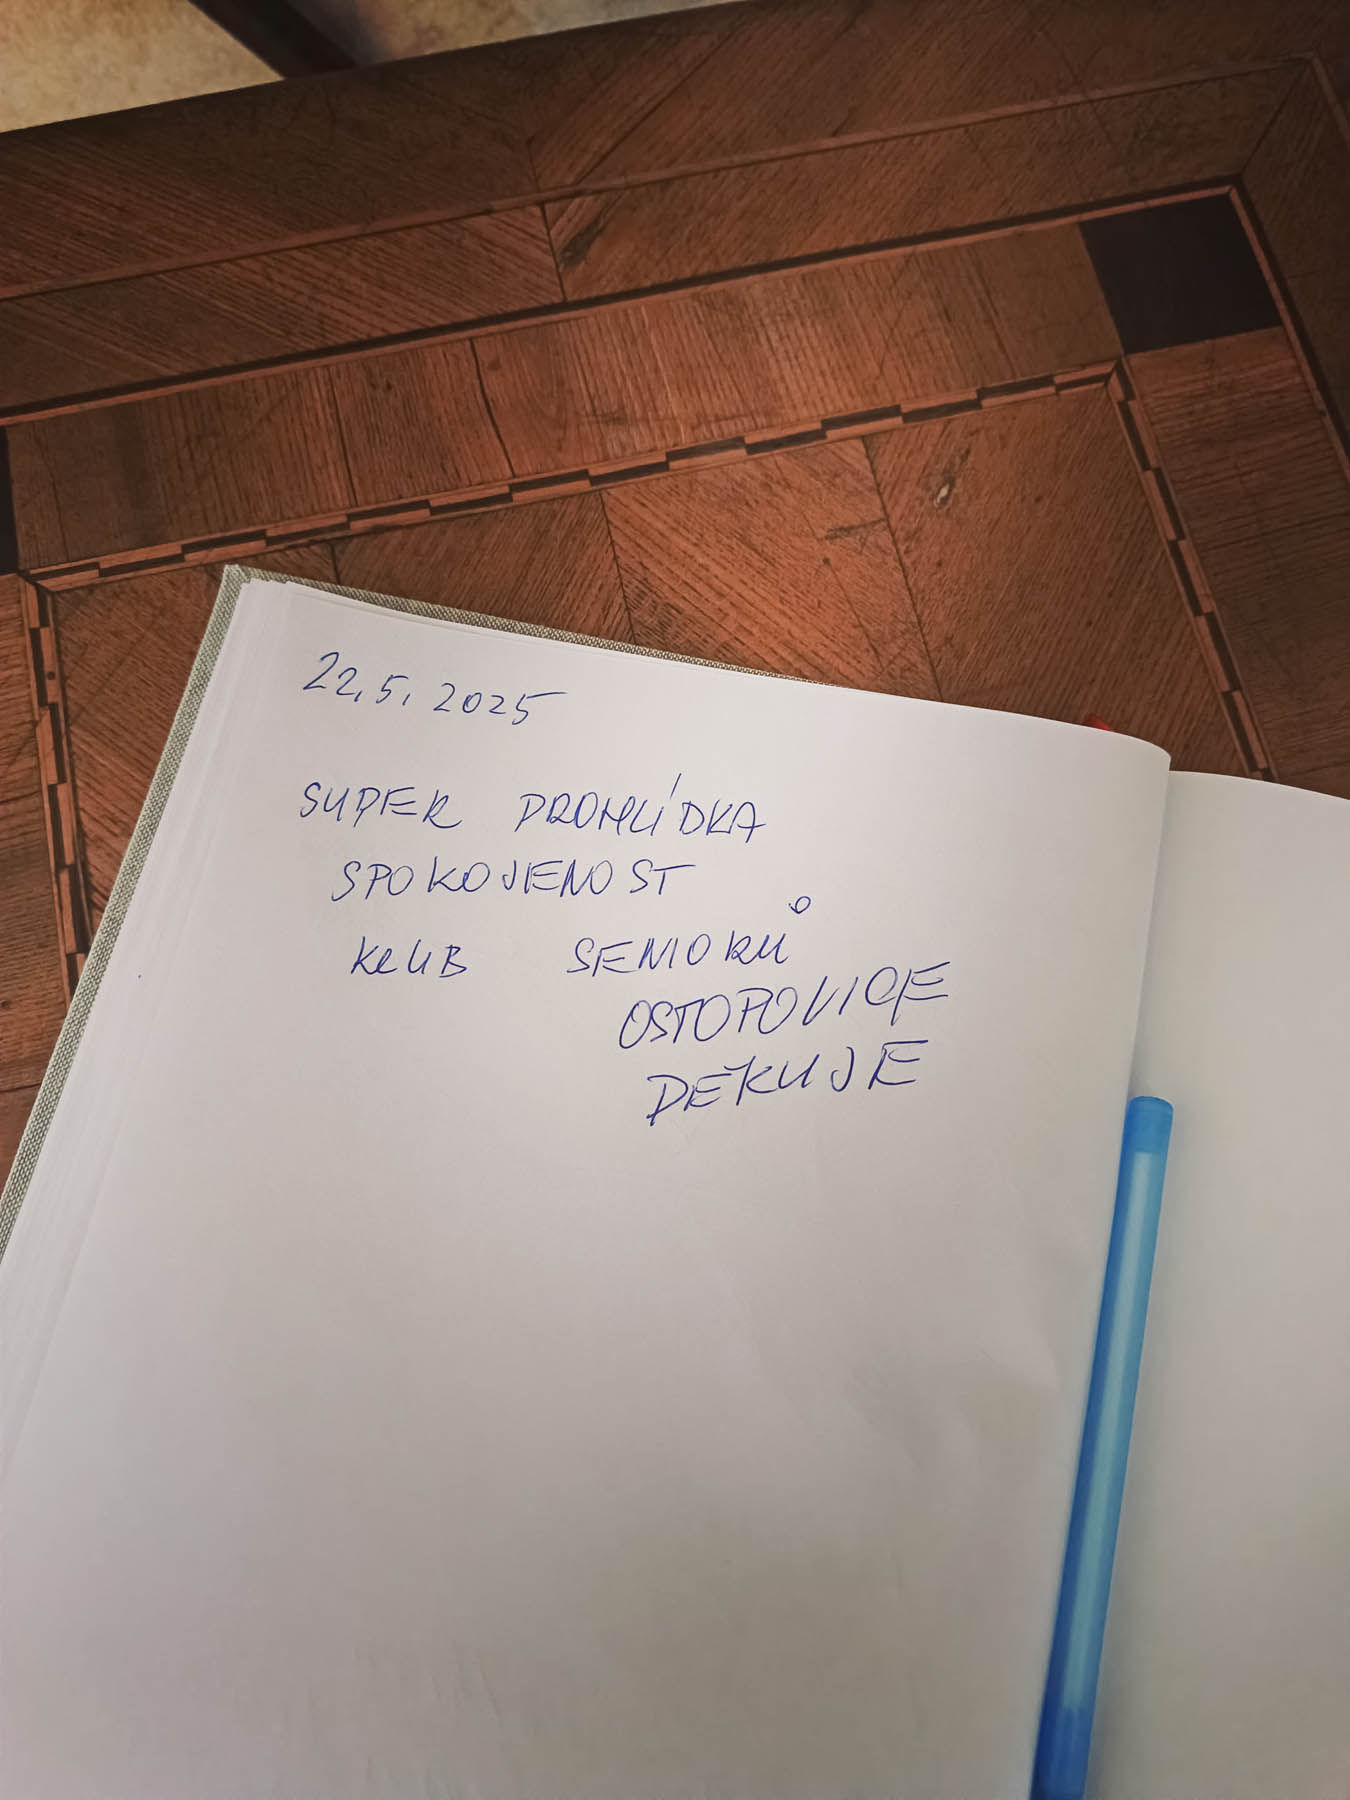 22.5.2025
SUPER PROHLÍDKA
SPOKOJENOST
KLUB SENIORŮ
OSTOPOVICE
DĚKUJE